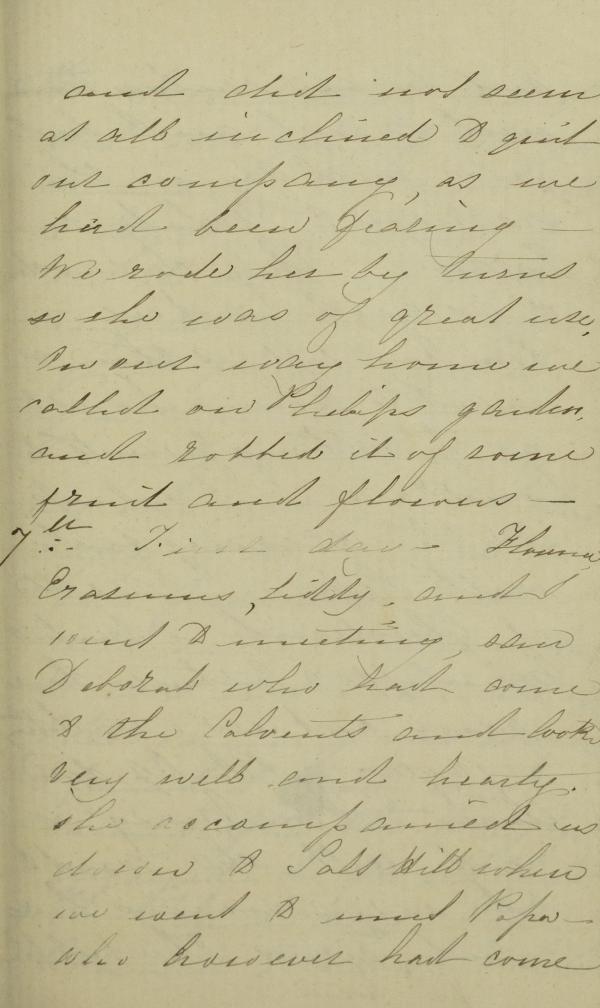 and did not seem
at all inclined to quit
our company, as we
had been fearing —
We rode her by turns
so she was of great use,
On our way home we
called on Philips garden,
and robbed it of some
fruit and flowers —
7th First day —
Erasmus, Liddy, and I
went to meeting, saw
Deborah who had come
to the Calverts and looks
very well and hearty.
She accompanied us
down to Salt Hill when
we went to meet Papa —
who however had come